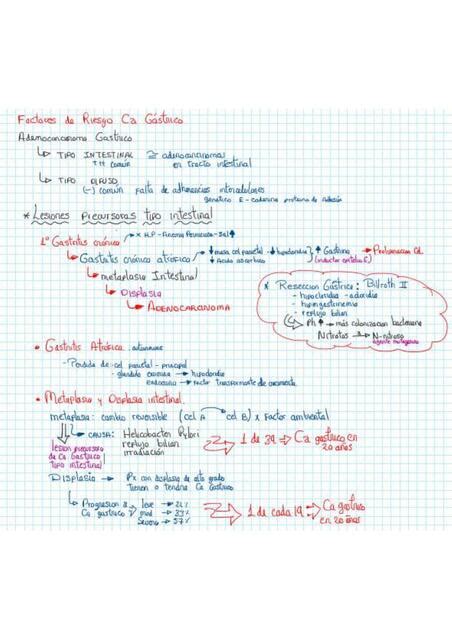 Factores de Riesgo Ca Gástrico
Adenocarcinoma Gastrico
↳ TIPO INTESTINAL ≅ adenocarcinomas
TH común en tracto intestinal
↳ TIPO DIFUSO
(-) común Falta de adherencias intercelulares
Genetico E-caderina proteina de Adhesión
* Lesiones Precursoras tipo intestinal
1º Gastritis crónica → x H.P - Anemia Perniciosa - Sal ↑
↳ Gastritis crónica atrófica → ↓ masa cel parietal - ↓ hipoclordia ↑ Gastrina → Proliferacion Cel.
↓ Acido ascorbico (inductor
↳ metaplasia Intestinal
↳ Displasia
↳ ADENOCARCINOMA
* Reseccion Gástrica: Billroth II
- hipocloridia - aclordia
- hipergastrinemia
- reflujo biliar
↳ Ph ↑ → más colonizacion bacteriana
Nitratos → N-nitroso
agente mutageno
• Gastritis Atrofica: autoinmune
- Perdida de cel parietal - principal
- glandula oxintica → hipoclordia
→ factor transformante de crecimiento
• Metaplasia y Displasia intestinal.
metaplasia: cambio reversible (cel A → cel B) x Factor ambiental
↳ CAUSA: Helicobacter Pylori
reflujo biliar
irradiación
1 de 39 ⇒ Ca gastrico en
20 años
lesion precursora
de Ca Gastrico
tipo intestinal
Displasia → Px con displasia de alto grado
Tienen o tendrá Ca Gastrico
↳ Progresion a leve → 21%
Ca gastrico mod → 33%
Severo → 57%
1 de cada 19 ⇒ Ca gastrico
en 20 años